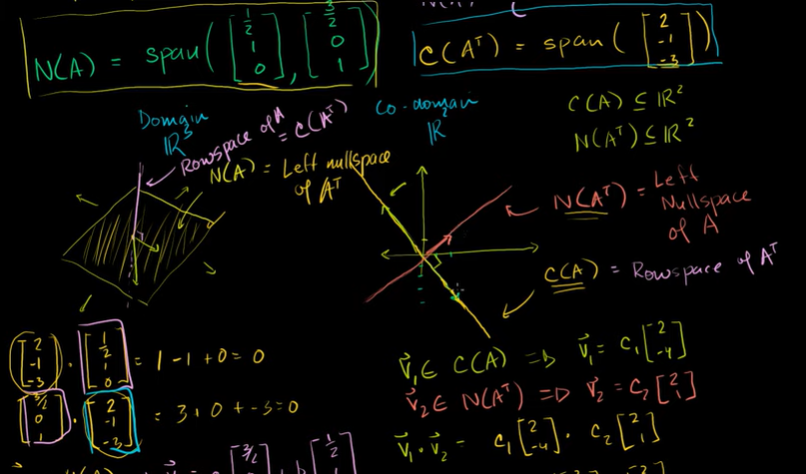 N(A) = span([1/2 1 0], [3/2 0 1])
C(Aᵀ) = span([2 -1 -3])
Domain
ℝ³
Rowspace of A
= C(Aᵀ)
N(A) = Left nullspace
of Aᵀ
Co-domain
ℝ²
C(A) ⊆ ℝ²
N(Aᵀ) ⊆ ℝ²
N(Aᵀ) = Left
Nullspace
of A
C(A) = Rowspace of Aᵀ
[2 -1 -3] · [1/2 1 0] = 1 - 1 + 0 = 0
[3/2 0 1] · [2 -1 -3] = 3 + 0 + -3 = 0
v⃗₁ ∈ C(A) ⇒ v⃗₁ = c₁[2 -4]
v⃗₂ ∈ N(Aᵀ) ⇒ v⃗₂ = c₂[2 1]
v⃗₁ · v⃗₂ = c₁[2 -4] · c₂[2 1]